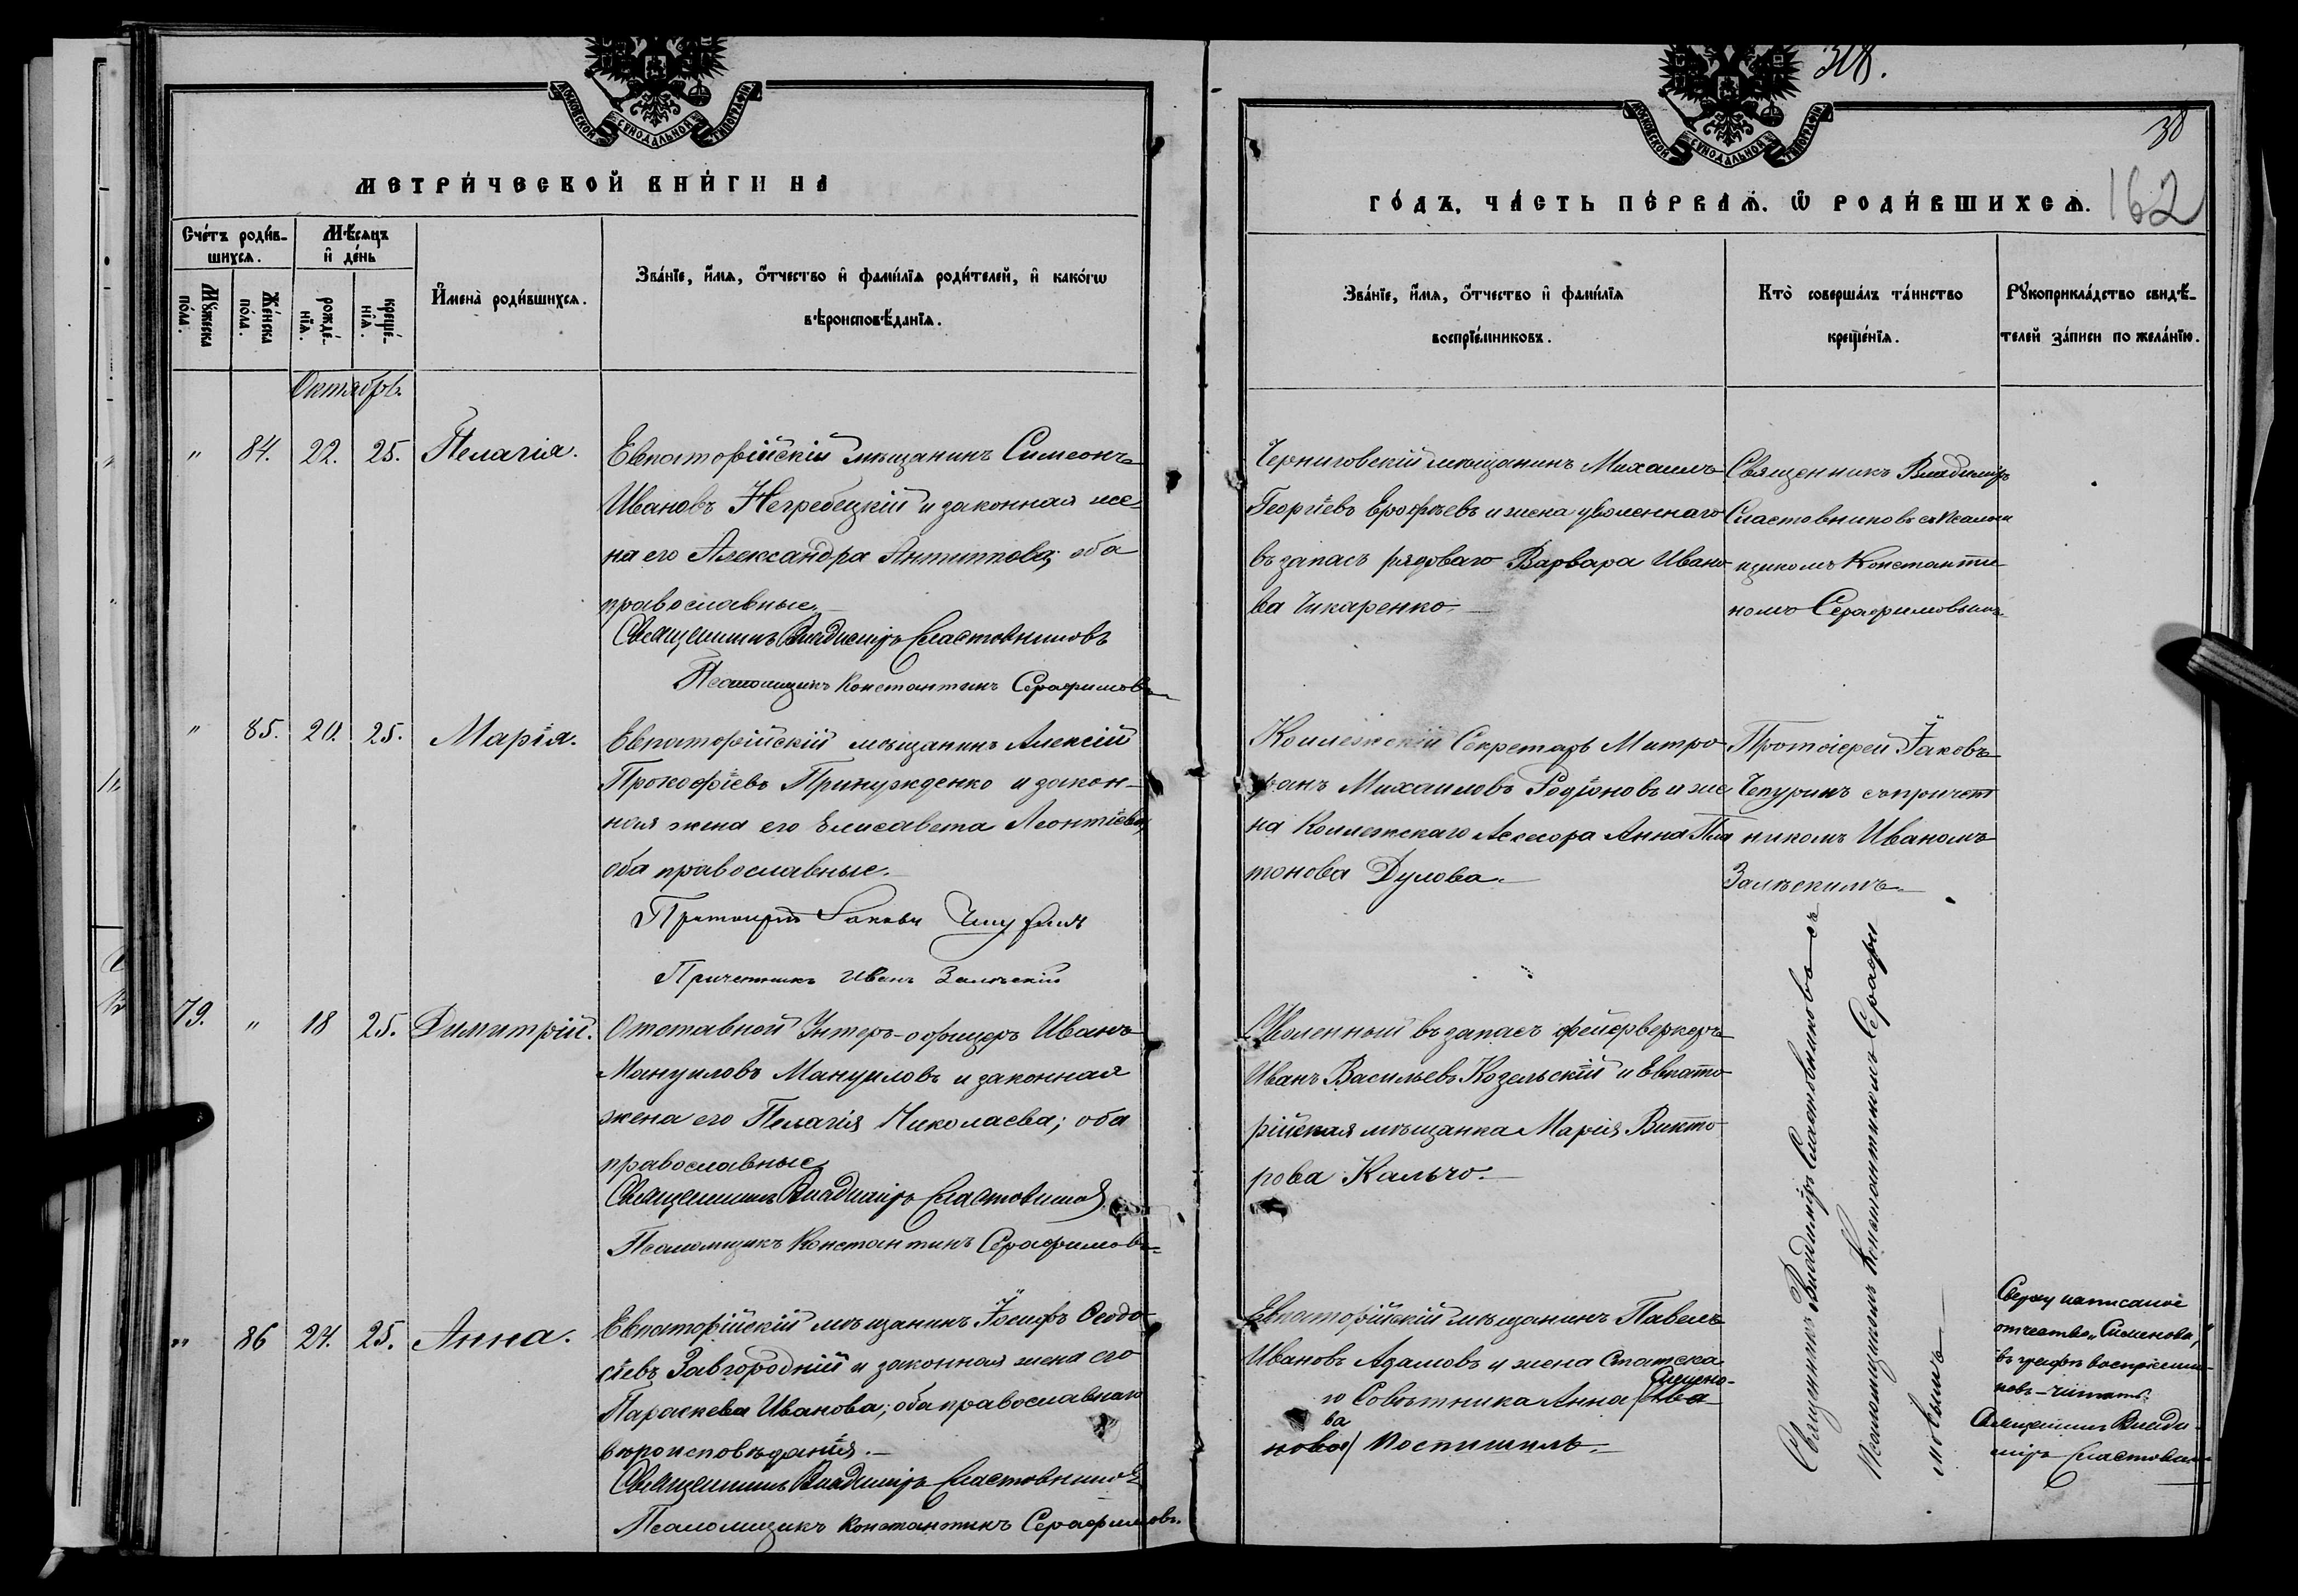 МОСКОВСКОЙ СѴНОДАЛЬНОЙ ТИПОГРАФІИ
МЕТРИЧЕСКОЙ КНИГИ НА
Счетъ родившихся.
Мѣсяцъ и день
Мужеска пола.
Женска пола.
рожденія.
крещенія.
Имена родившихся.
Званіе, имя, отчество и фамилія родителей, и какогѡ
вѣроисповѣданія.
Октябрь
" 84. 22. 25. Пелагія.
Евпаторійскій мѣщанинъ Симеонъ
Ивановъ Негребецкій и законная же-
на его Александра Антипова; оба
православные.
Священникъ Владиміръ Сластовниковъ
Псаломщикъ Константинъ Серафимовъ
" 85. 20. 25. Марія.
Евпаторійскій мѣщанинъ Алексій
Прокофіевъ Принужденко и закон-
ная жена его Елисавета Леонтіева,
оба православные.
Протоіерей Іаковъ Чепуринъ
Причетникъ Иванъ Залѣскій
79. " 18 25. Димитрій.
Отставной Унтеръ-офицеръ Иванъ
Мануиловъ Мануиловъ и законная
жена его Пелагія Николаева; оба
православные
Священникъ Владиміръ Сластовниковъ
Псаломщикъ Константинъ Серафимовъ
" 86 24. 25. Анна.
Евпаторійскій мѣщанинъ Іосифъ Ѳеодо-
сіевъ Завгородній и законная жена его
Параскева Иванова; оба православнаго
вѣроисповѣданія.
Священникъ Владиміръ Сластовниковъ
Псаломщикъ Константинъ Серафимовъ.
38
162
МОСКОВСКОЙ СѴНОДАЛЬНОЙ ТИПОГРАФІИ
ГОДЪ, ЧАСТЬ ПЕРВАЯ, Ѿ РОДИВШИХСЯ.
Званіе, имя, отчество и фамилія
воспріемниковъ.
Кто совершалъ таинство
крещенія.
Рукоприкладство свидѣ-
телей записи по желанію.
Черниговскій мѣщанинъ Михаилъ
Георгіевъ Ерофѣевъ и жена уволеннаго
въ запасъ рядоваго Варвара Ивано
ва Чикаренко
Священникъ Владиміръ
Сластовниковъ съ Псалом
щикомъ Константи
номъ Серафимовымъ
Коллежскій Секретарь Митро
фанъ Михаиловъ Родіоновъ и же
на Коллежскаго Ассесора Анна Пла
тонова Дулова
Протоіерей Іаковъ
Чепуринъ съ причет
никомъ Иваномъ
Залѣскимъ
Уволенный въ запасъ фейерверкеръ
Иванъ Васильевъ Козельскій и Евпато
рійская мѣщанка Марія Викто
рова Кальчо.
Евпаторійскій мѣщанинъ Павелъ
Ивановъ Адамовъ и жена Статска
го Совѣтника Анна Ива
Симено-
ва
нова Поспишиль
Священникъ Владиміръ Сластовниковъ съ
Псаломщикомъ Константиномъ Серафи
мовымъ
Сверху написаное
отчество "Сименова"
въ графѣ воспріемни-
ковъ - читать.
Священникъ Влади-
міръ Сластовник